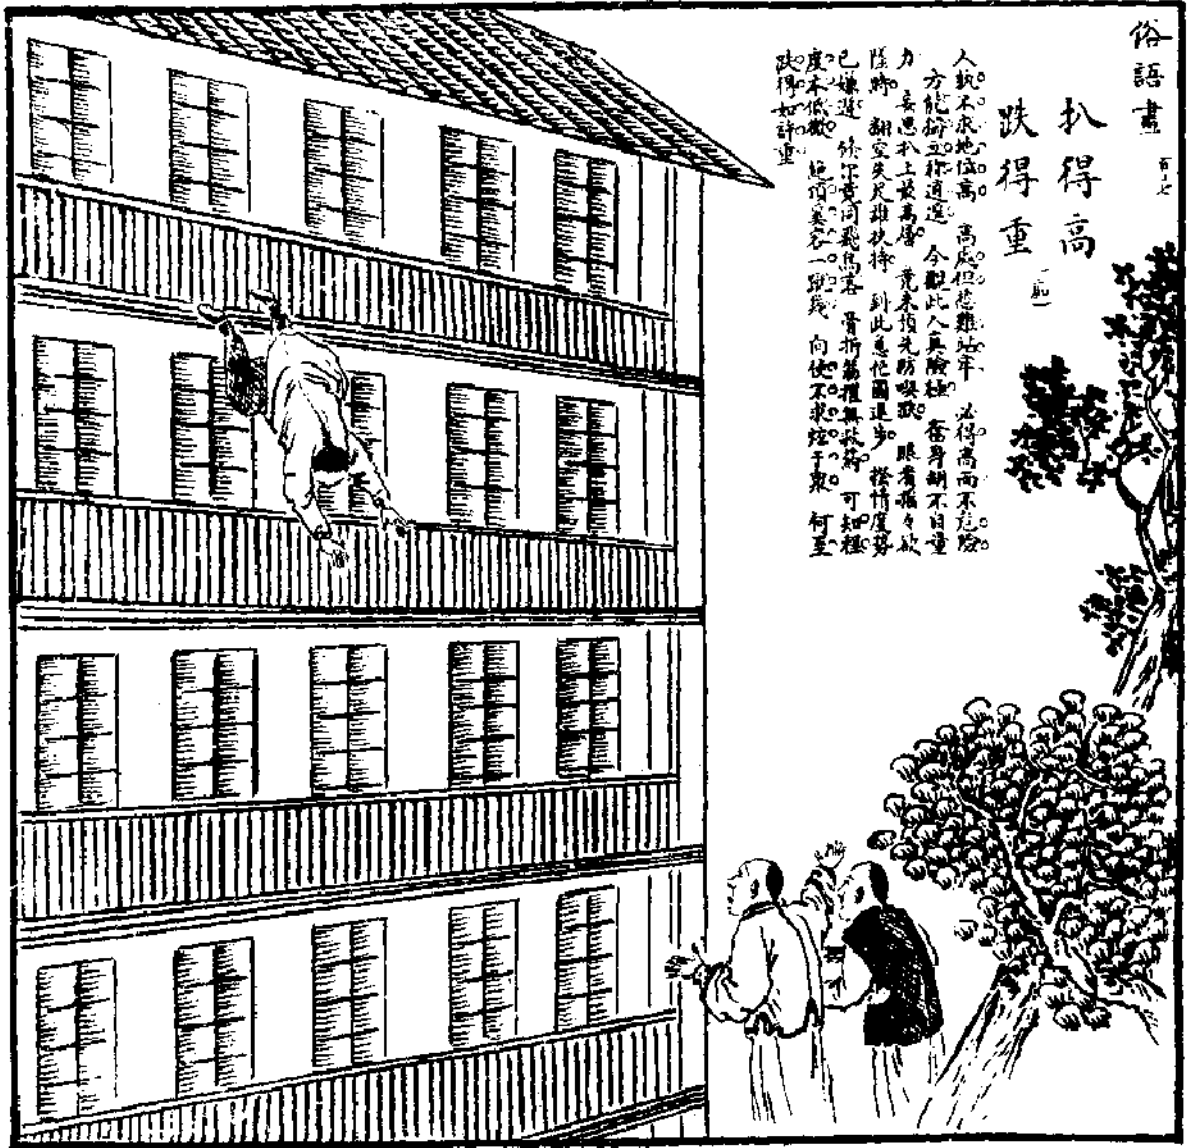 俗語畫
百十七
扒得高
跌得重
人孰不求地位高 高處但愁難站牢 必得高而不危險
方能獨立称逍遥 今觀此人真險極 奮身胡不自量
力 妄思扒上最高層 竟未預先防喫跌 眼看搖々欲
墮時 翻空失足誰扶持 到此急忙圖退步 揆情度勢
已嫌遲 倏尔竟同飛鳥落 骨折筋摧無救藥 可知程
度本低微 絶頂奚容一蹴幾 向使不求炫于眾 何至
跌得如許重